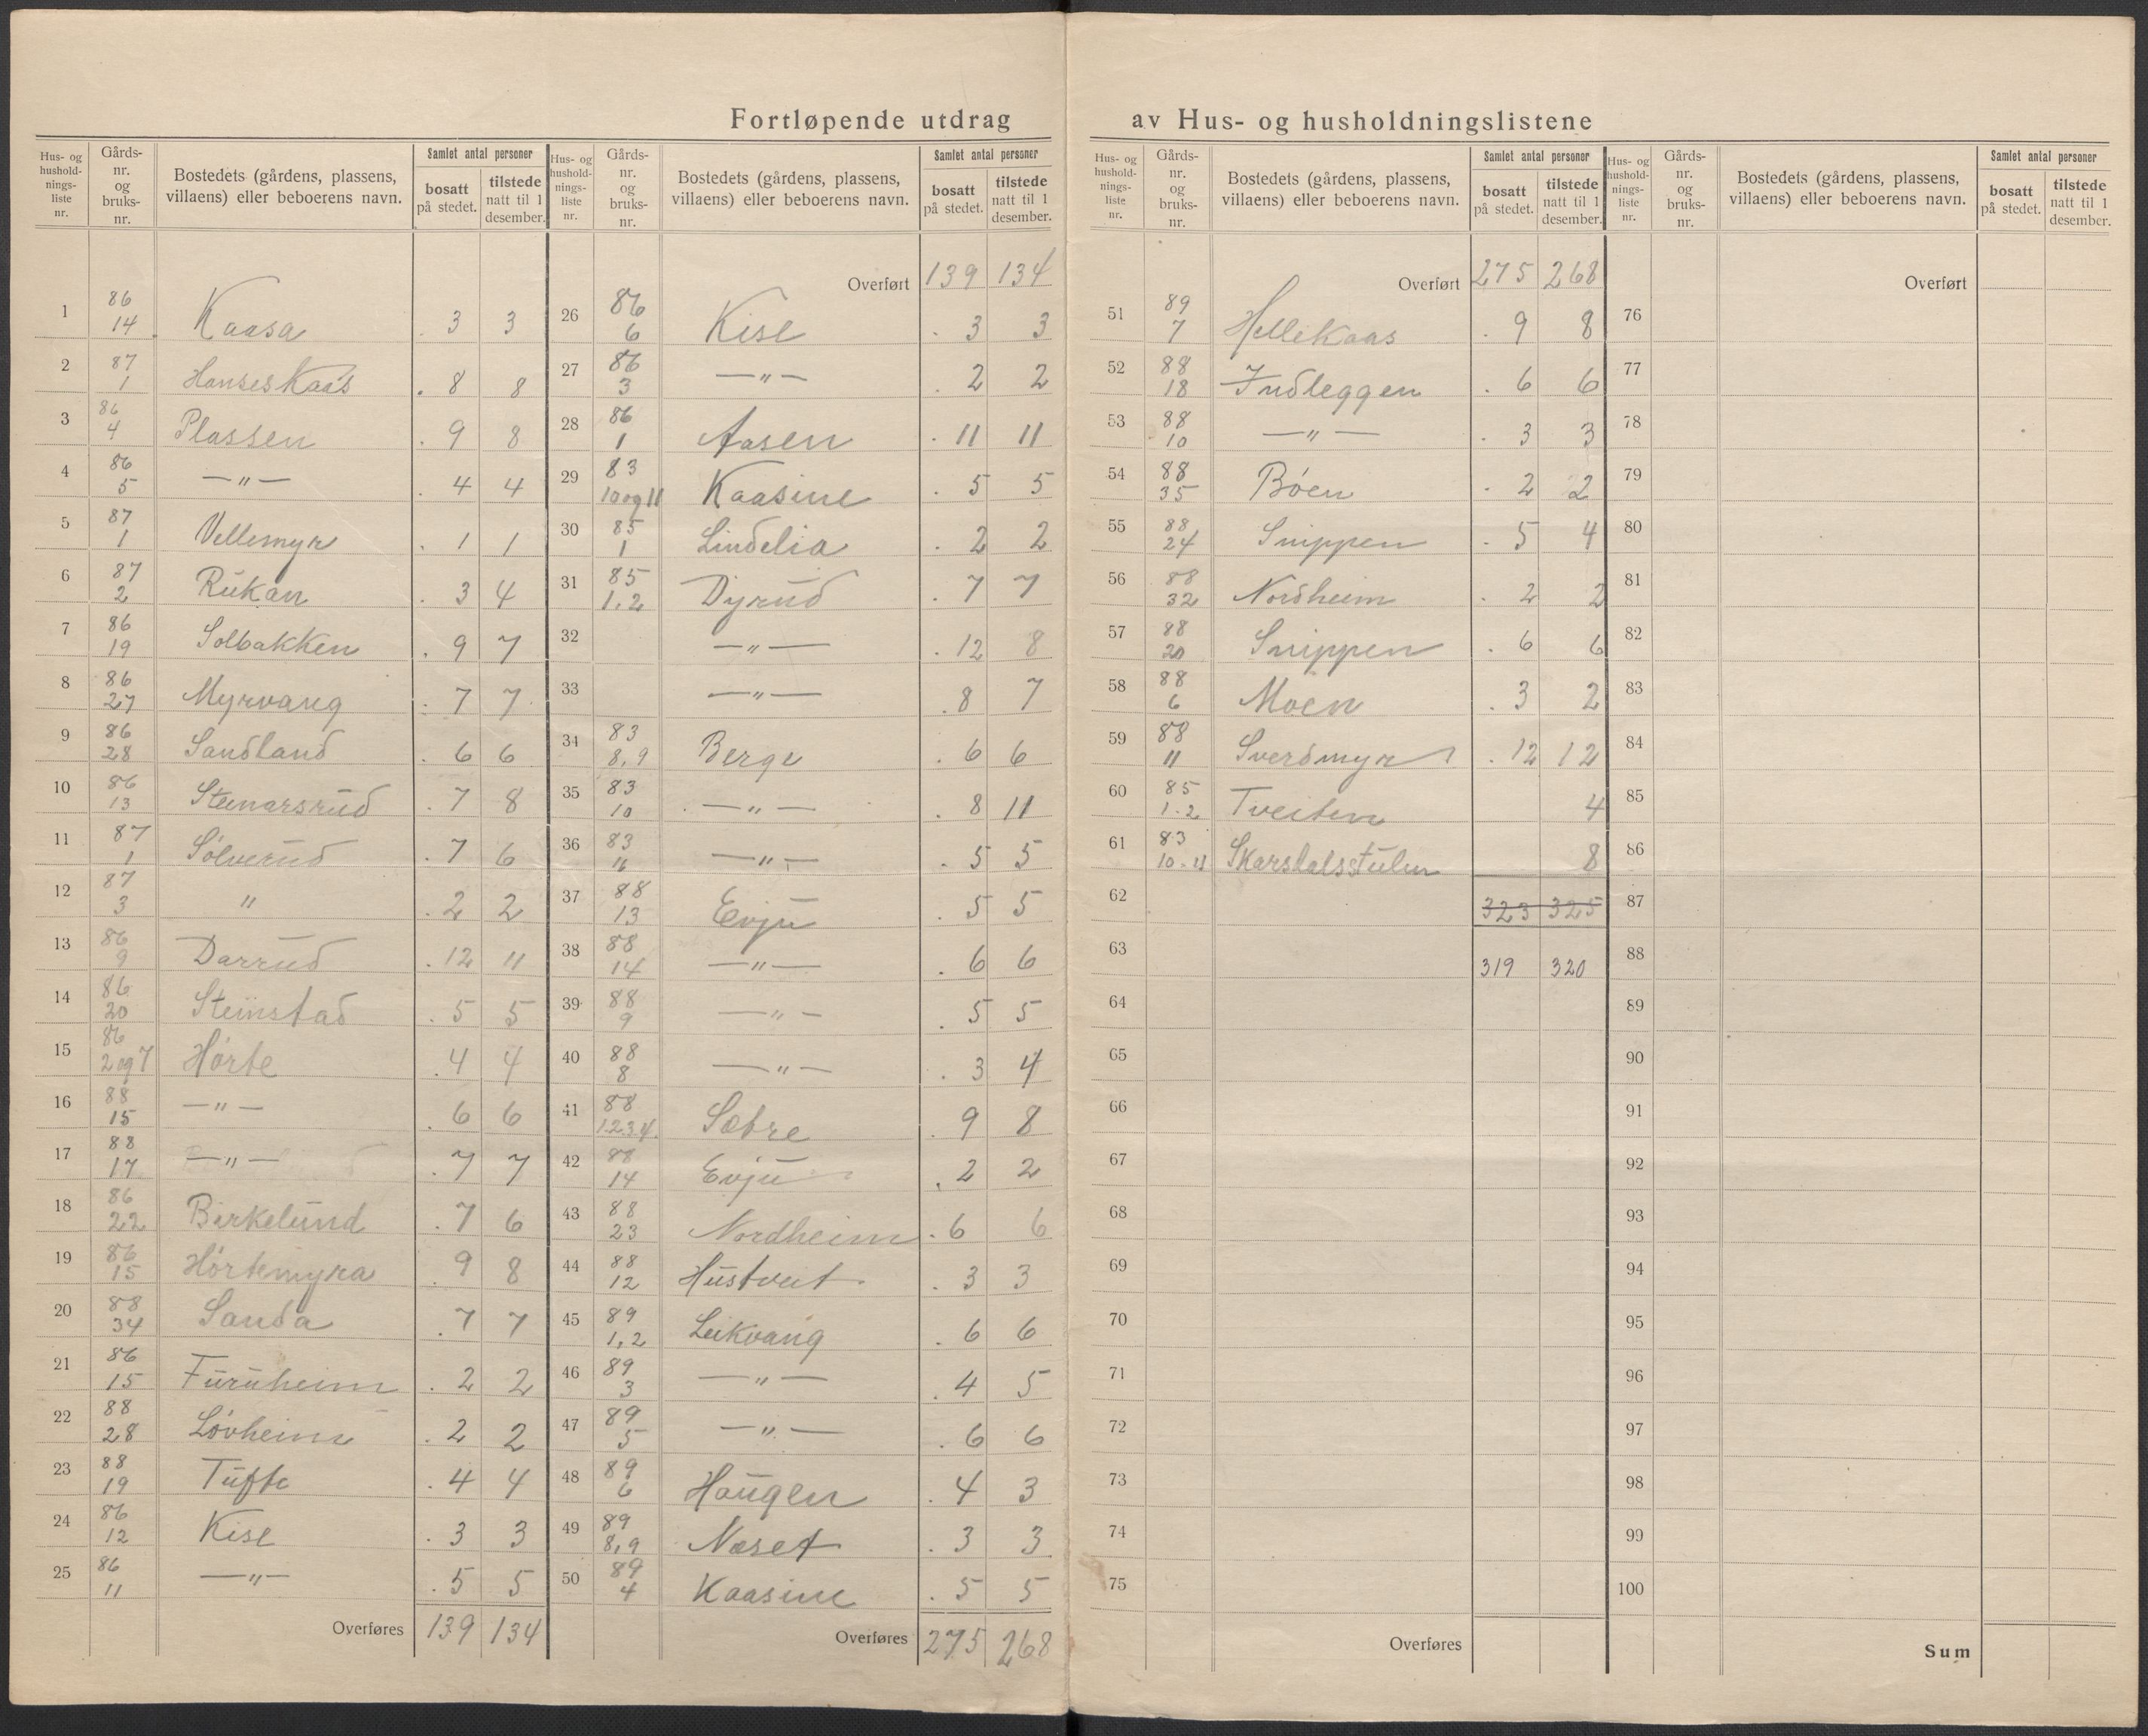 Fortløpende utdrag av Hus- og husholdningslistene
Hus- og husholdnings-liste nr. | Gårds-nr. og bruks-nr. | Bostedets (gårdens, plassens, villaens) eller beboerens navn. | Samlet antal personer | bosatt på stedet. | tilstede natt til 1 desember.
1 86 14 Kaasa 3 3
2 87 1 Hanseskaas 8 8
3 86 4 Plassen 9 8
4 86 5 — " — 4 4
5 87 1 Vellemyr 1 1
6 87 2 Rukan 3 4
7 86 19 Solbakken 9 7
8 86 27 Myrvang 7 7
9 86 28 Sandland 6 6
10 86 13 Steinarsrud 7 8
11 87 1 Solverud 7 6
12 87 3 " 2 2
13 86 9 Darrud 12 11
14 86 20 Steinstad 5 5
15 86 2 og 7 Hørte 4 4
16 88 15 — " — 6 6
17 88 17 — " — 7 7
18 86 22 Birkelund 7 6
19 86 15 Hørtemyra 9 8
20 88 34 Sanda 7 7
21 86 15 Furuheim 2 2
22 88 28 Løvheim 2 2
23 88 19 Tufte 4 4
24 86 12 Kise 3 3
25 86 11 — " — 5 5
Overføres 139 134
Hus- og husholdnings-liste nr. | Gårds-nr. og bruks-nr. | Bostedets (gårdens, plassens, villaens) eller beboerens navn. | Samlet antal personer | bosatt på stedet. | tilstede natt til 1 desember.
Overført 139 134
26 86 6 Kise 3 3
27 86 3 — " — 2 2
28 86 1 Aasen 11 11
29 83 10 og 11 Kaasine 5 5
30 85 1 Lindelia 2 2
31 85 1,2 Dyrud 7 7
32 — " — 12 8
33 — " — 8 7
34 83 8,9 Berge 6 6
35 83 10 — " — 8 11
36 83 — " — 5 5
37 88 13 Evju 5 5
38 88 14 — " — 6 6
39 88 9 — " — 5 5
40 88 8 — " — 3 4
41 88 1234 Sæbre 9 8
42 88 14 Evju 2 2
43 88 23 Nordheim 6 6
44 88 12 Hustveit 3 3
45 89 1,2 Leikvang 6 6
46 89 3 — " — 4 5
47 89 5 — " — 6 6
48 89 6 Haugen 4 3
49 89 8,9 Næset 3 3
50 89 4 Kaasine 5 5
Overføres 275 268
Hus- og husholdnings-liste nr. | Gårds-nr. og bruks-nr. | Bostedets (gårdens, plassens, villaens) eller beboerens navn. | Samlet antal personer | bosatt på stedet. | tilstede natt til 1 desember.
Overført 275 268
51 89 7 Hellikaas 9 8
52 88 18 Indleggen 6 6
53 88 10 — " — 3 3
54 88 35 Bøen 2 2
55 88 24 Snippen 5 4
56 88 32 Nordheim 2 2
57 88 20 Snippen 6 6
58 88 6 Moen 3 2
59 88 11 Sverdmyr 12 12
60 85 1-2 Tveiten 4
61 83 10-11 Skarsdalsstulen 8
62 323 325
63 319 320
64
65
66
67
68
69
70
71
72
73
74
75
Overføres
Hus- og husholdnings-liste nr. | Gårds-nr. og bruks-nr. | Bostedets (gårdens, plassens, villaens) eller beboerens navn. | Samlet antal personer | bosatt på stedet. | tilstede natt til 1 desember.
Overført
76
77
78
79
80
81
82
83
84
85
86
87
88
89
90
91
92
93
94
95
96
97
98
99
100
Sum